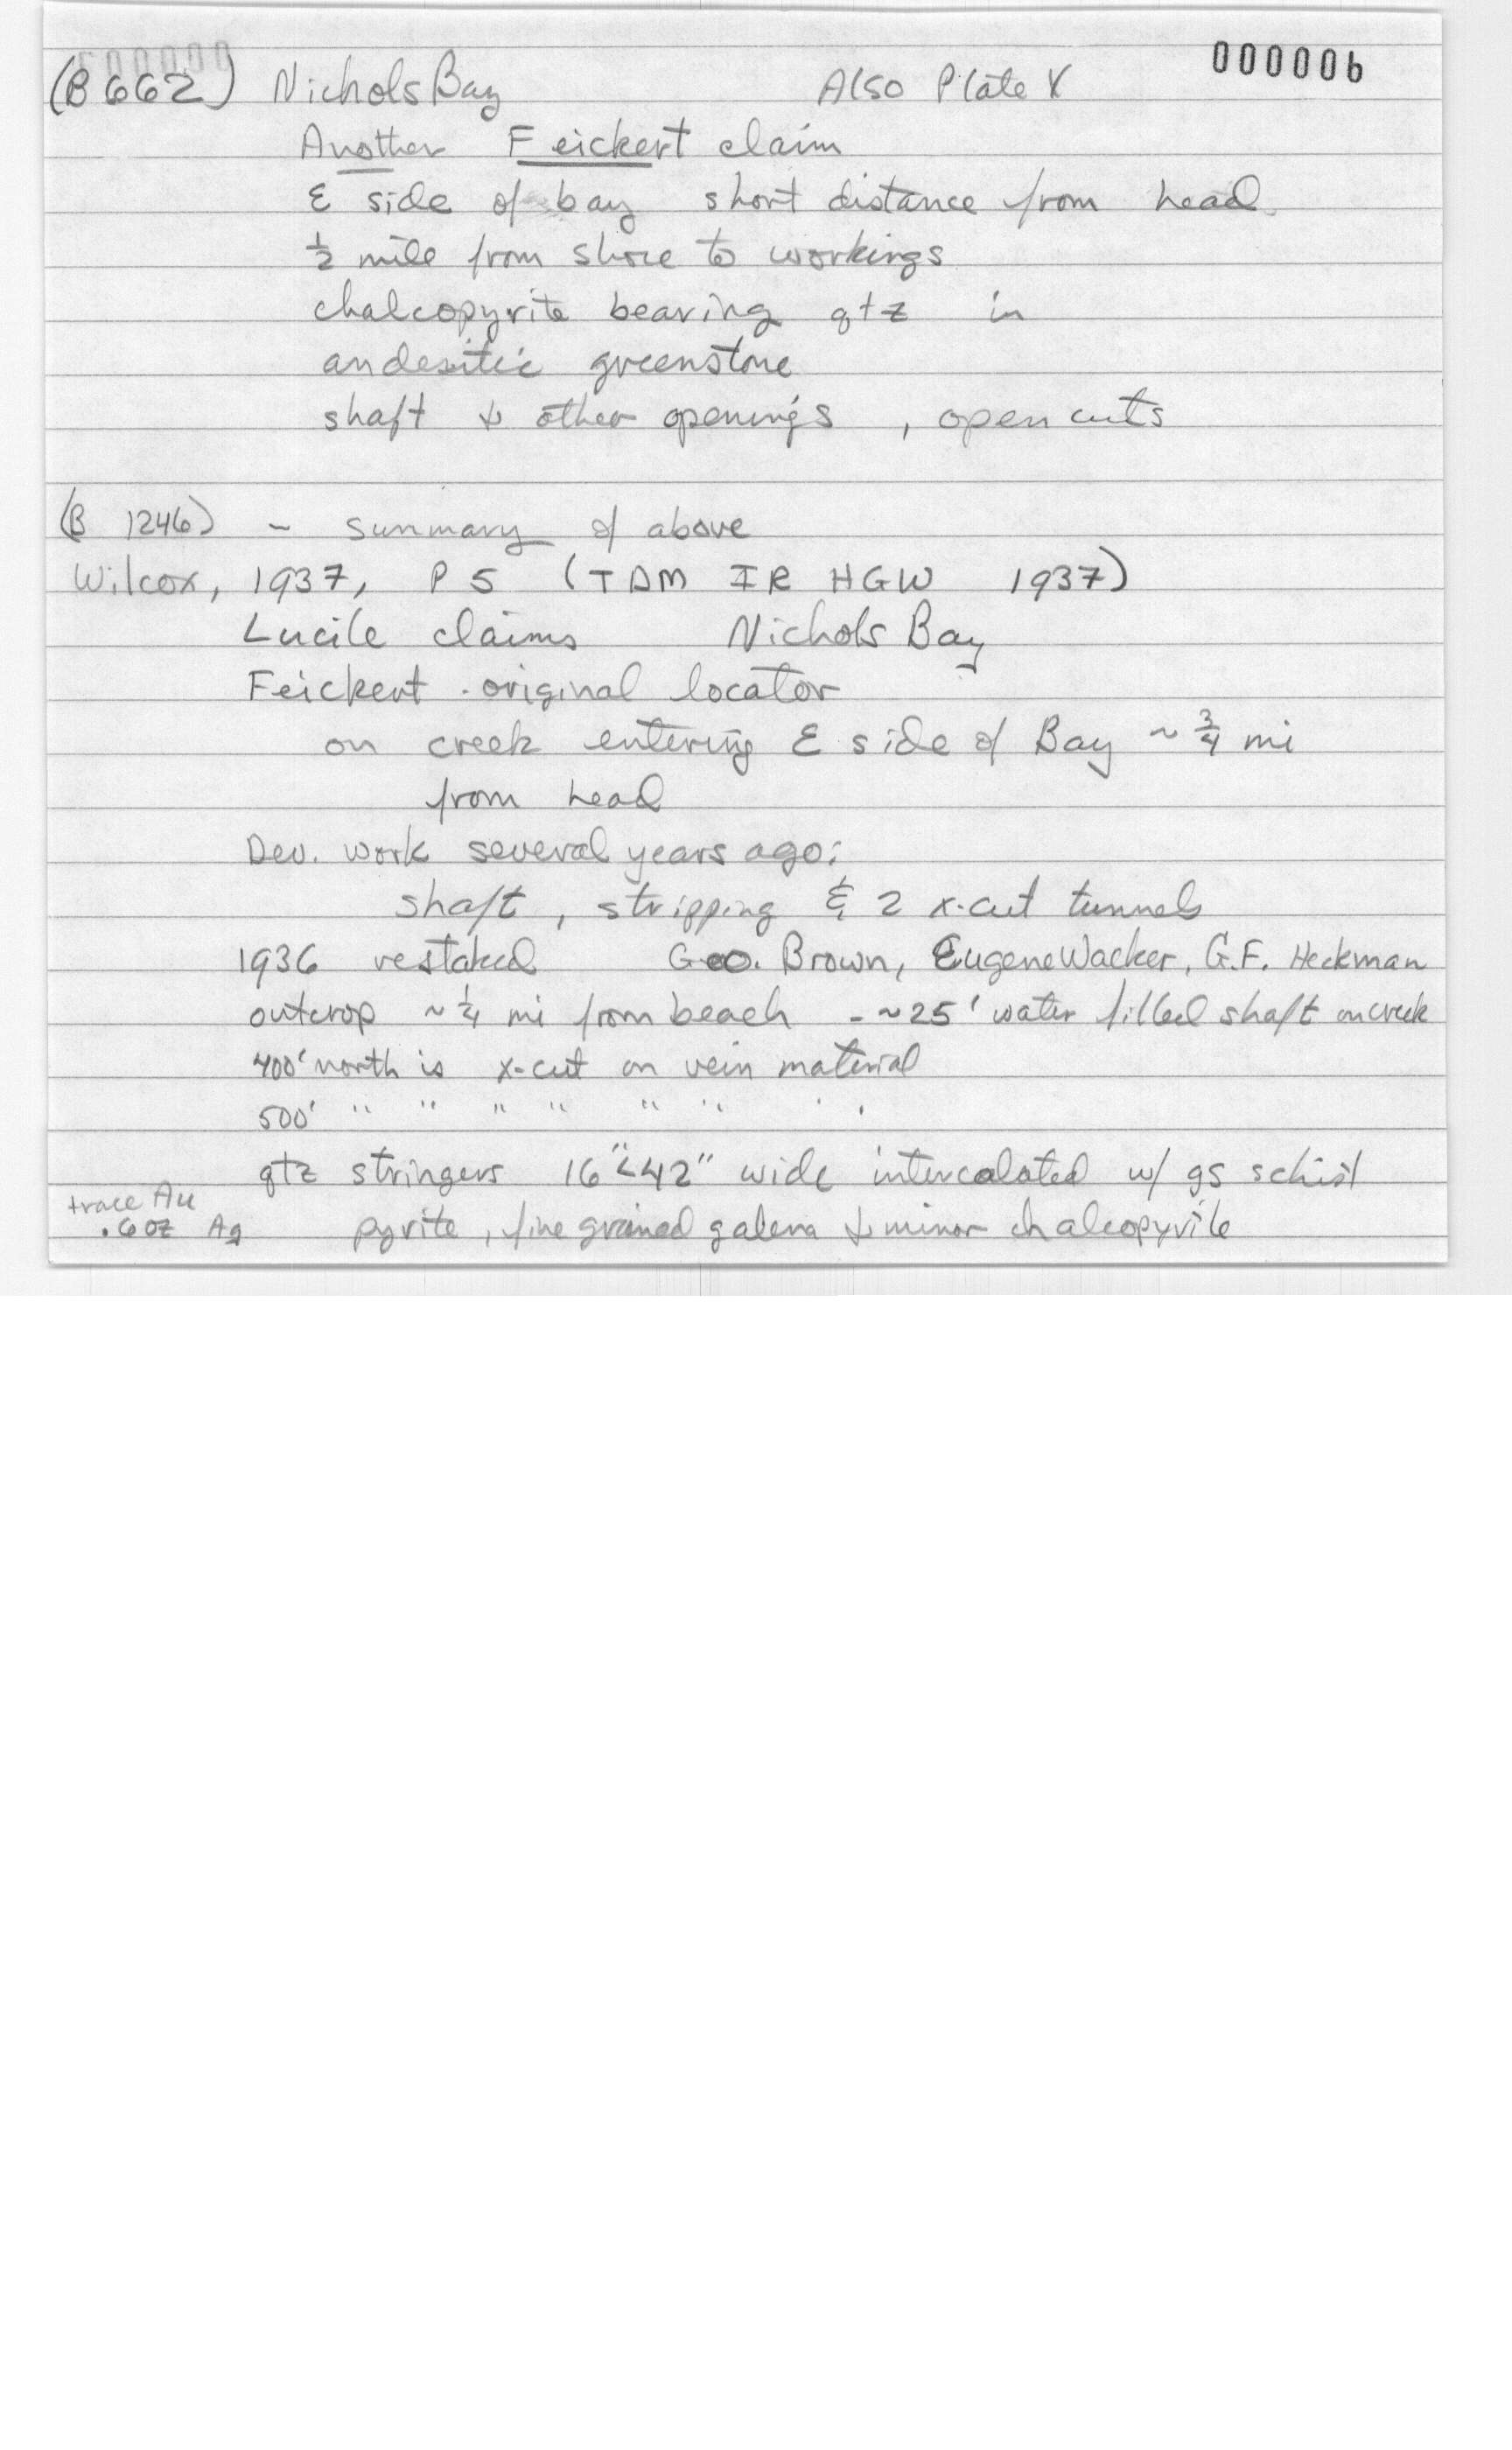 (B 662) Nichols Bay Also Plate V 000006
Another Feickert claim
E side of bay short distance from head
½ mile from shore to workings
chalcopyrite bearing qtz in
andesitic greenstone
shaft & other openings, open cuts
(B 1246) - summary of above
Wilcox, 1937, P 5 (TDM IR HGW 1937)
Lucile claims Nichols Bay
Feickert - original locator
on creek entering E side of Bay ~ ¾ mi
from head
Dev. work several years ago:
shaft, stripping & 2 x-cut tunnels
1936 restaked Geo. Brown, Eugene Wacker, G.F. Heckman
outcrop ~ ¼ mi from beach - ~25' water filled shaft on creek
400' north is x-cut on vein material
500' " " " " " " " "
qtz stringers 16"<42" wide intercalated w/ gs schist
trace Au
.6 oz Ag pyrite, fine grained galena & minor chalcopyrite